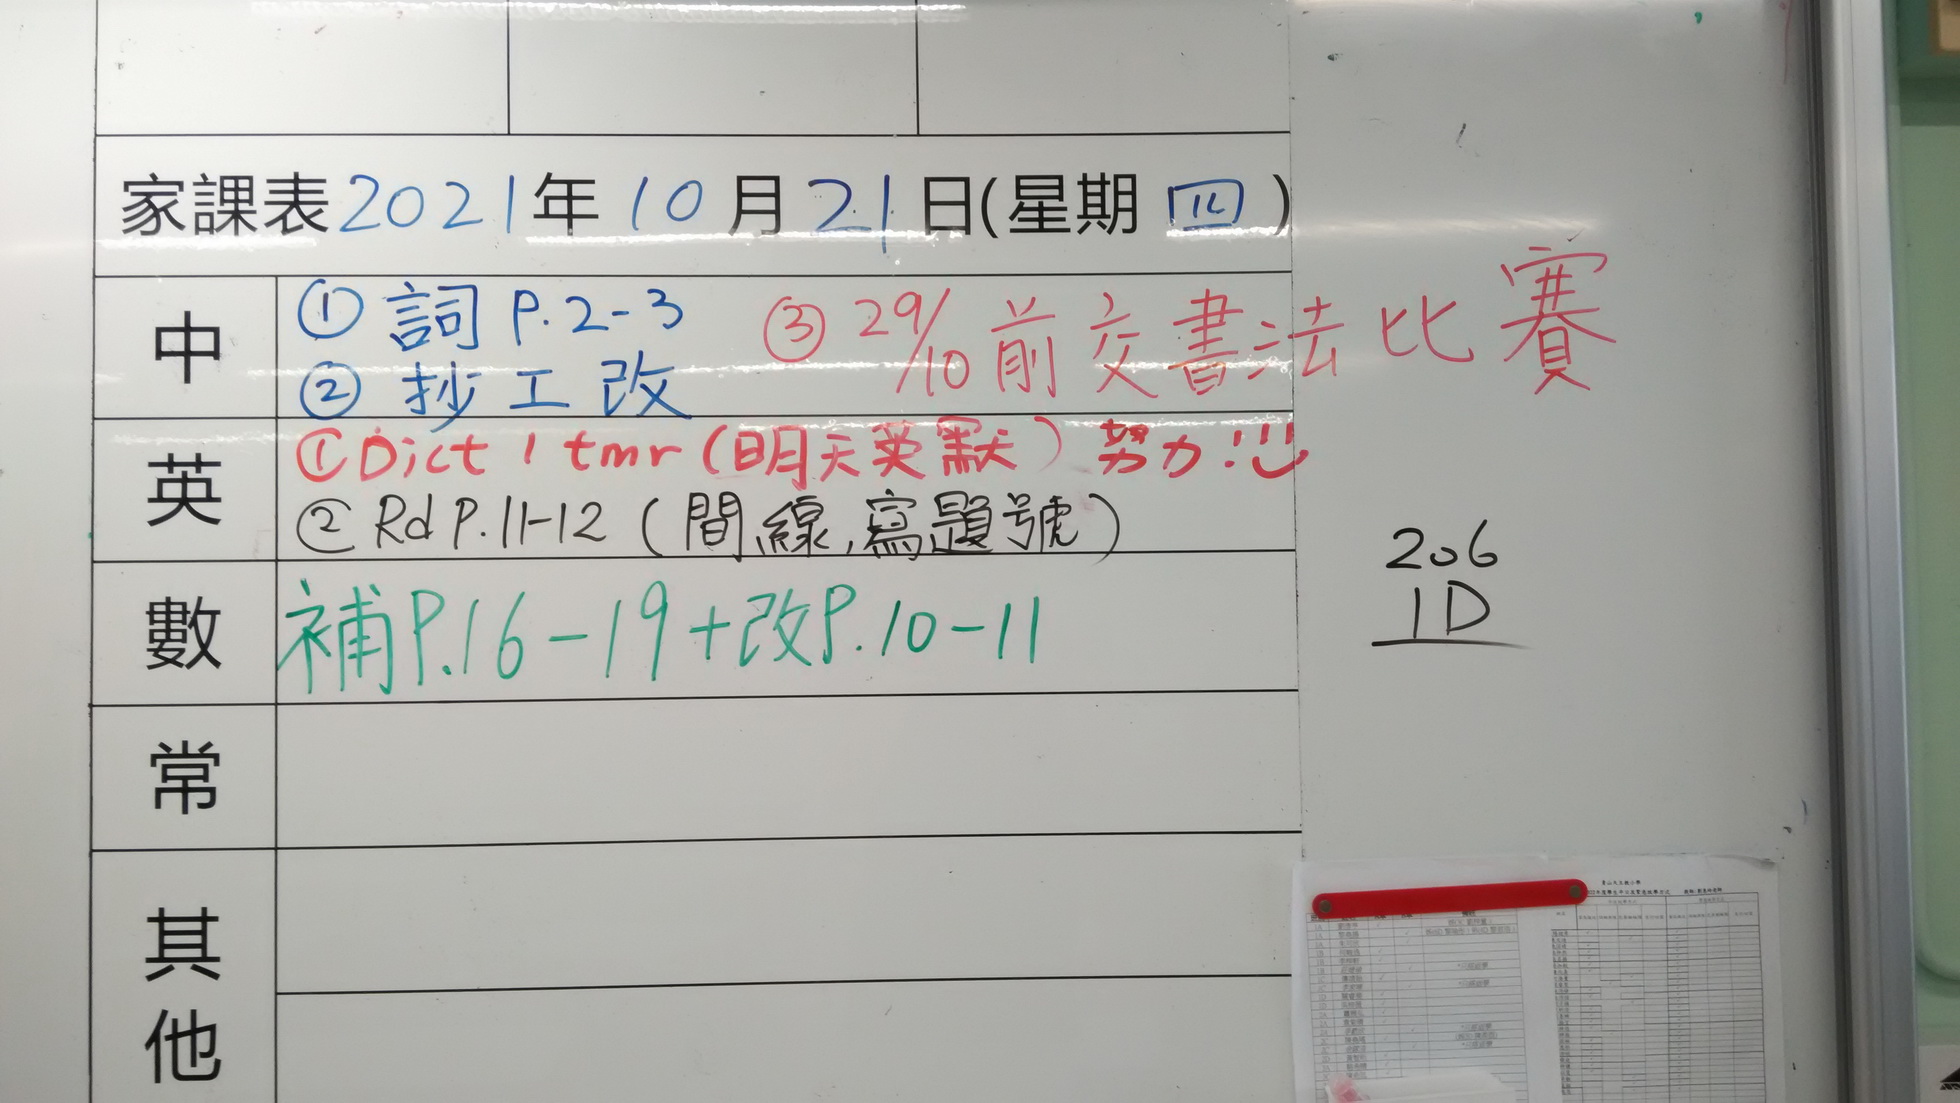 家課表2021年10月21日(星期四)
中
① 詞 P.2-3
② 抄工改
③ 29/10 前交書法比賽
英
① Dict 1 tmr (明天英默) 努力!!!
② Rd P.11-12 (間線,寫題號)
數
補P.16-19+改P.10-11
常
其他
206
1D